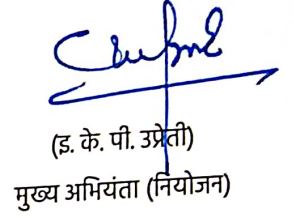 (इ. के. पी. उप्रेती)
मुख्य अभियंता (नियोजन)